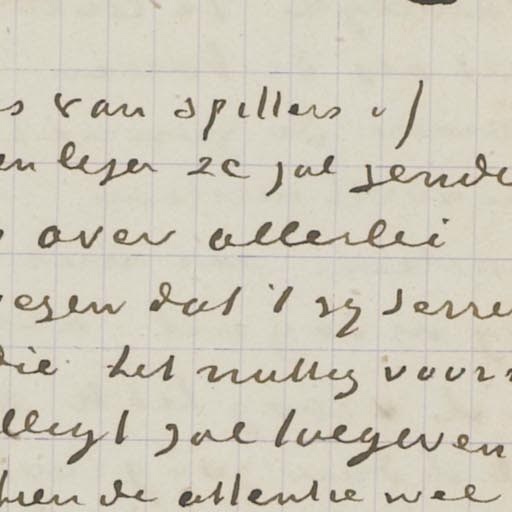 s van spillers of
en leger ze zal zende
over allerlei
egen dat 't zy
die het nuttig voor
zal toegeven
de attentie wel